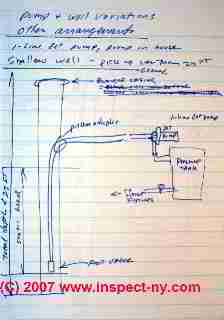 Pump & well variations
other arrangements
1-Line Jet pump, pump in house
Shallow well -
pitless adapter
1-Line Jet pump
Jet
Pump
Pressure
Tank
to
fixtures
foot valve
static head
Total depth < 25 FT
(C) 2007 www.inspect-ny.com